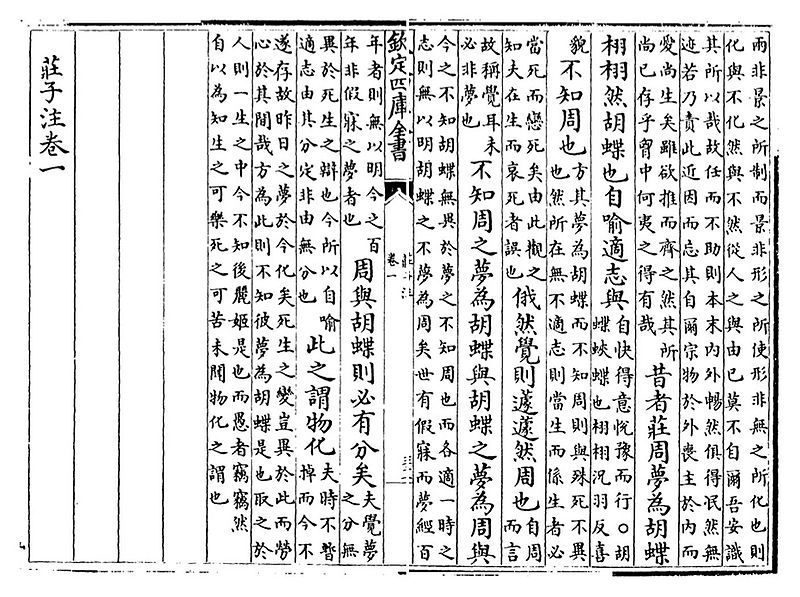 雨非景之所制而景非形之所使形非無之所化也則
化與不化然與不然從人之與由己莫不自爾吾安識
其所以哉故任而不助則本末内外暢然俱得泯然無
迹若乃責此近因而忘其自爾宗物於外喪主於内而
愛尚生矣雖欲推而齊之然其所
尚已存乎胷中何夷之得有哉
昔者莊周夢為胡蝶
栩栩然胡蝶也自喻適志與
自快得意悅豫而行○胡
蝶蛺蝶也栩栩況羽反喜
貌
不知周也
方其夢為胡蝶而不知周則與殊死不異
也然所在無不適志則當生而係生者必
當死而戀死矣由此觀之
知夫在生而哀死者誤也
俄然覺則蘧蘧然周也
自周
而言
故稱覺耳未
必非夢也
不知周之夢為胡蝶與胡蝶之夢為周與
今之不知胡蝶無異於夢之不知周也而各適一時之
志則無以明胡蝶之不夢為周矣世有假寐而夢經百
欽定四庫全書
莊子注
卷一
年者則無以明今之百
年非假寐之夢者也
周與胡蝶則必有分矣
夫覺夢
之分無
異於死生之辯也今所以自喻
適志由其分定非由無分也
此之謂物化
夫時不暫
停而今不
遂存故昨日之夢於今化矣死生之變豈異於此而勞
心於其間哉方為此則不知彼夢為胡蝶是也取之於
人則一生之中今不知後麗姬是也而愚者竊竊然
自以為知生之可樂死之可苦未聞物化之謂也
莊子注卷一